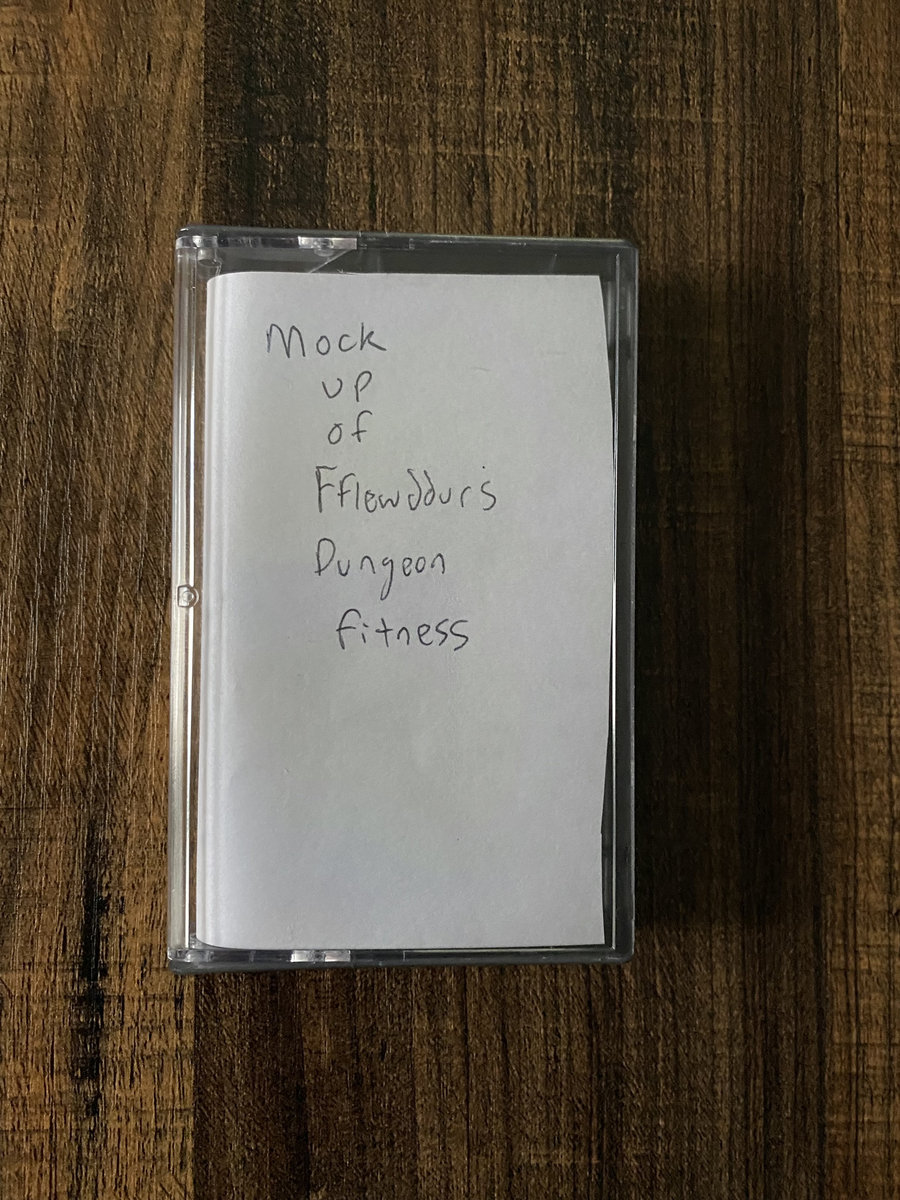 Mock
up
of
Fflewddur's
Dungeon
fitness